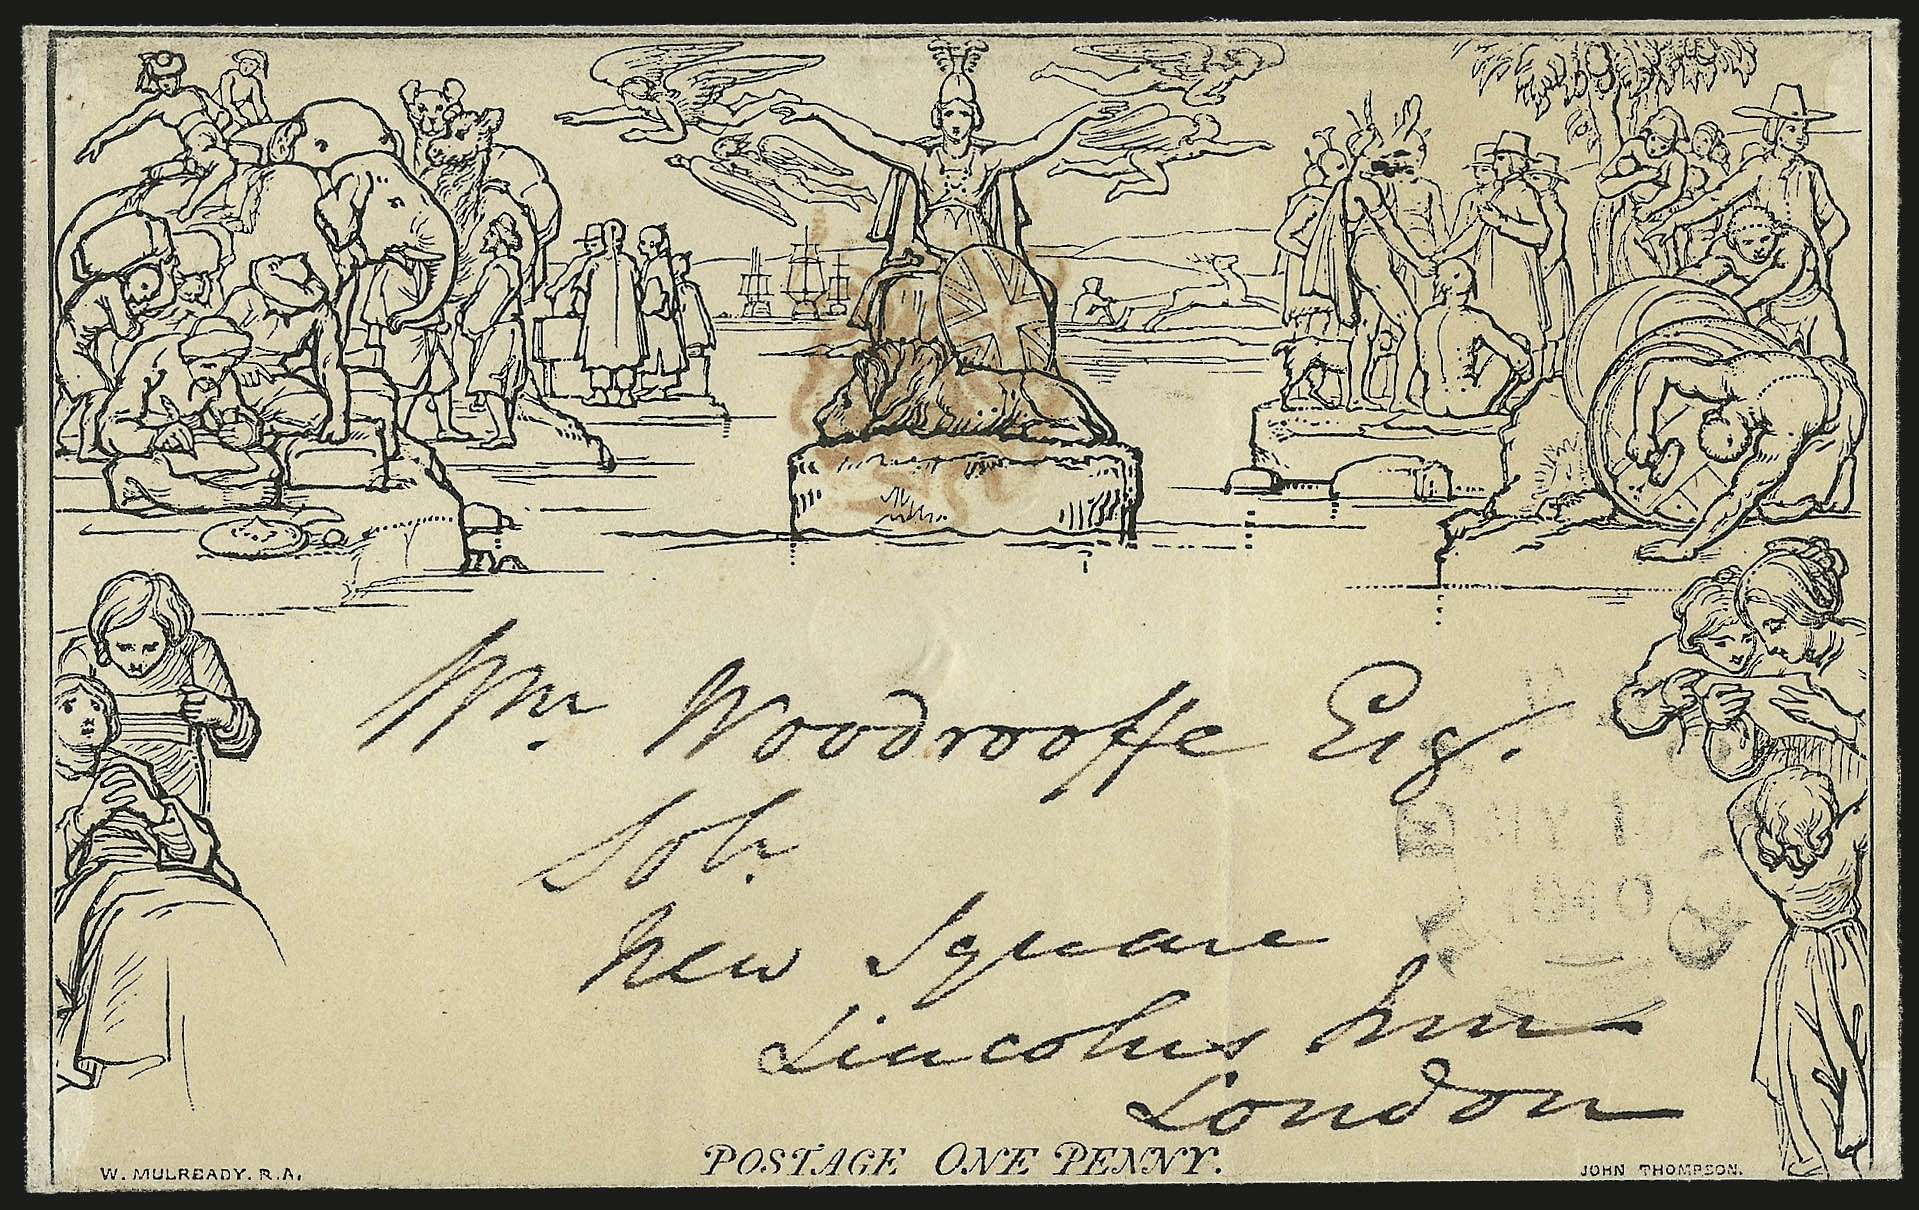 Wm Woodrooffe Esq.
Solr.
New Square
Lincolns Inn
London
POSTAGE ONE PENNY.
W. MULREADY. R.A.
JOHN THOMPSON.